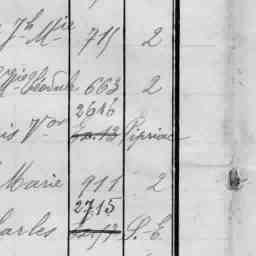 Jh Mie 715 2
663 2
2646
is Vor Pipriac
Marie 911 2
2715
arles S.-E.